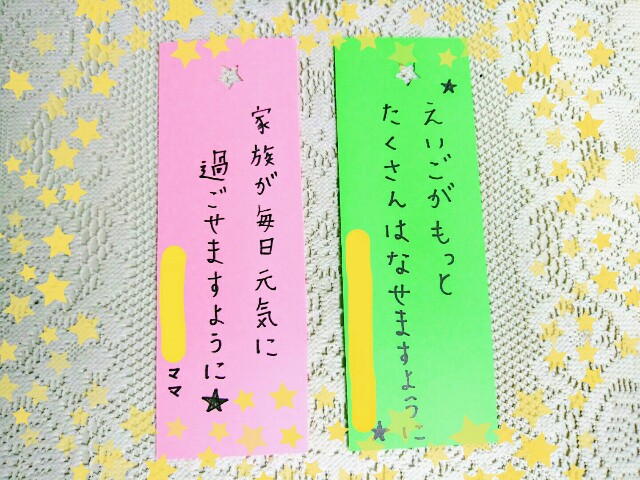 家族が毎日元気に
過ごせますように★
ママ
えいごがもっと
たくさんはなせますように